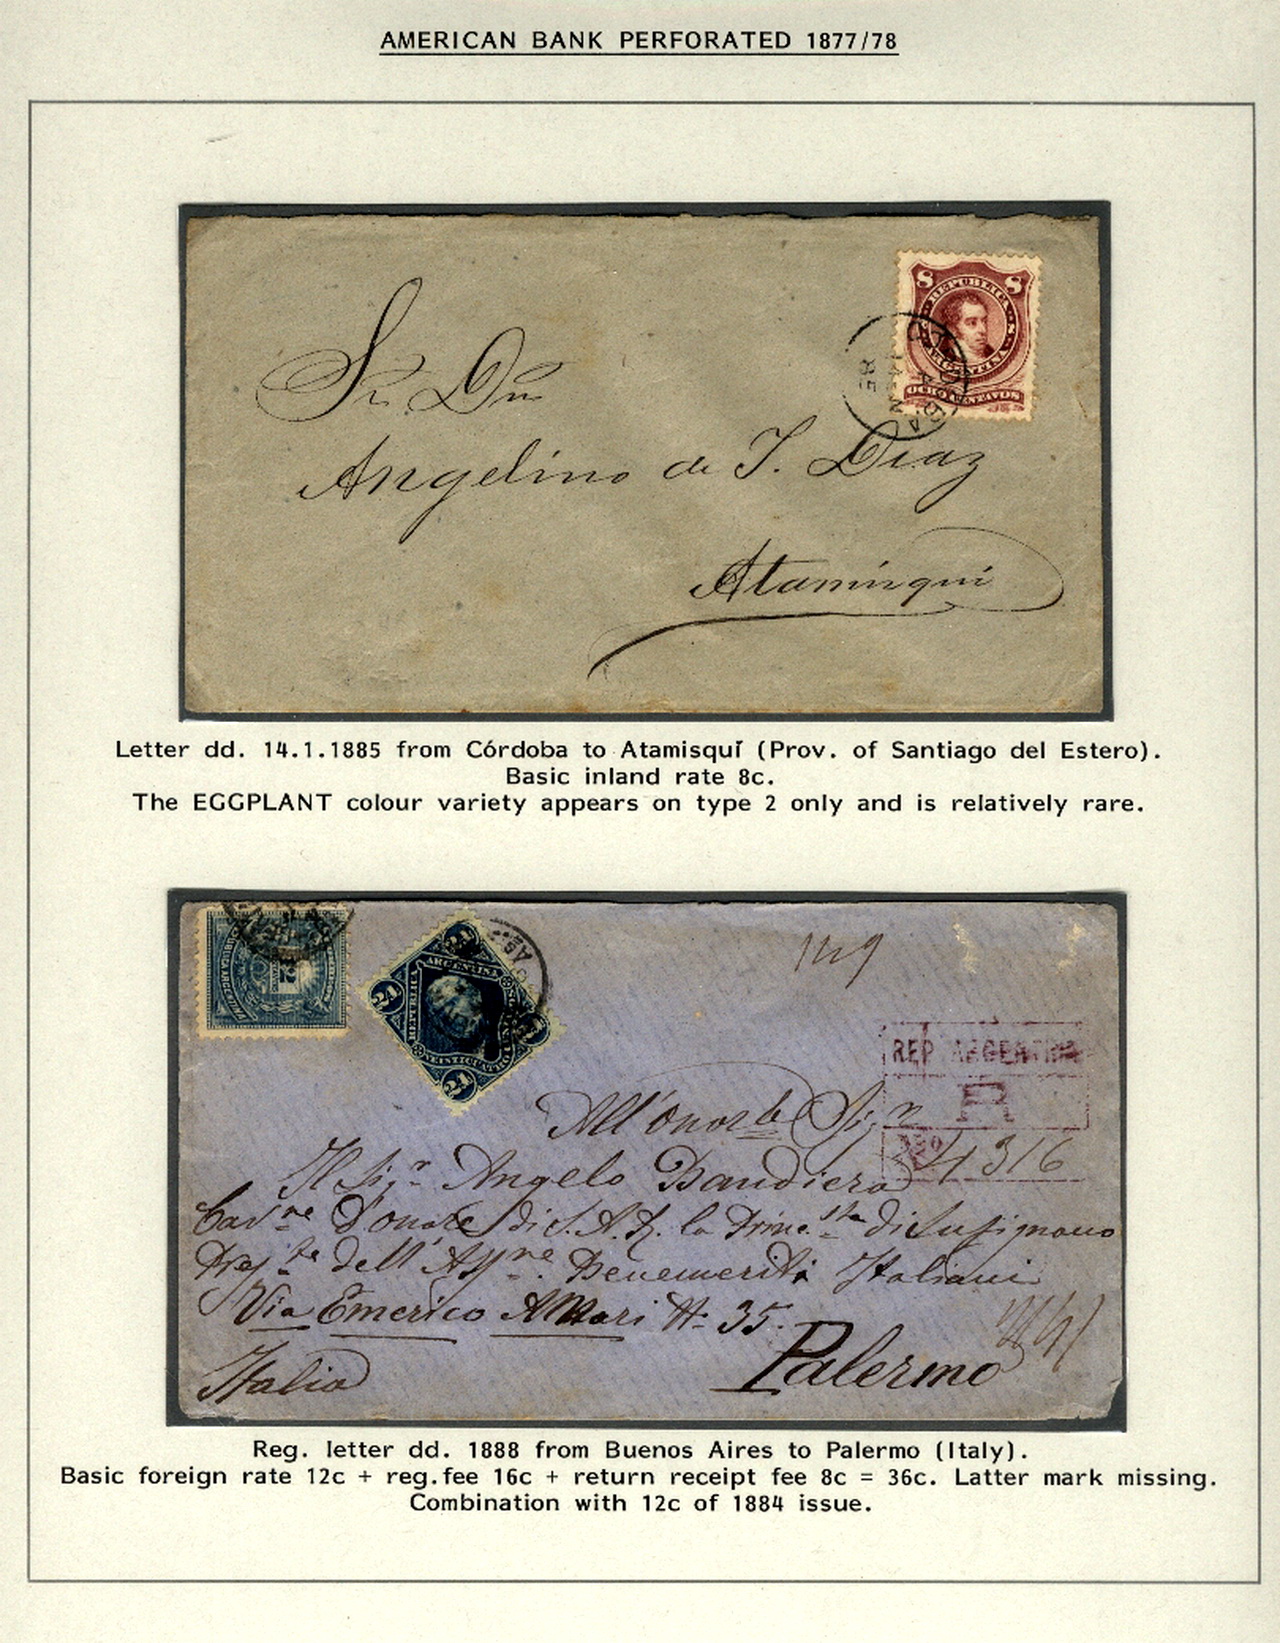 AMERICAN BANK PERFORATED 1877/78
8 8
REPUBLICA
ARGENTINA
OCHO CENTAVOS
CORDOBA
Sr. Dn
Angelino de J. Diaz
Atamisqui
Letter dd. 14.1.1885 from Córdoba to Atamisquí (Prov. of Santiago del Estero).
Basic inland rate 8c.
The EGGPLANT colour variety appears on type 2 only and is relatively rare.
12
24
ARGENTINA
24
REPUBLICA
VEINTICUATRO
24
149
REP. ARGENTINA
R
No 4316
All'Onorle Sigr
Il Sigr Angelo Bandiera
Cavre d'onore di S.A.R. la Princ. di Lusignano
dell' Benemeriti Italiani
Via Emerico Amari N. 35.
Palermo
Italia
Reg. letter dd. 1888 from Buenos Aires to Palermo (Italy).
Basic foreign rate 12c + reg.fee 16c + return receipt fee 8c = 36c. Latter mark missing.
Combination with 12c of 1884 issue.